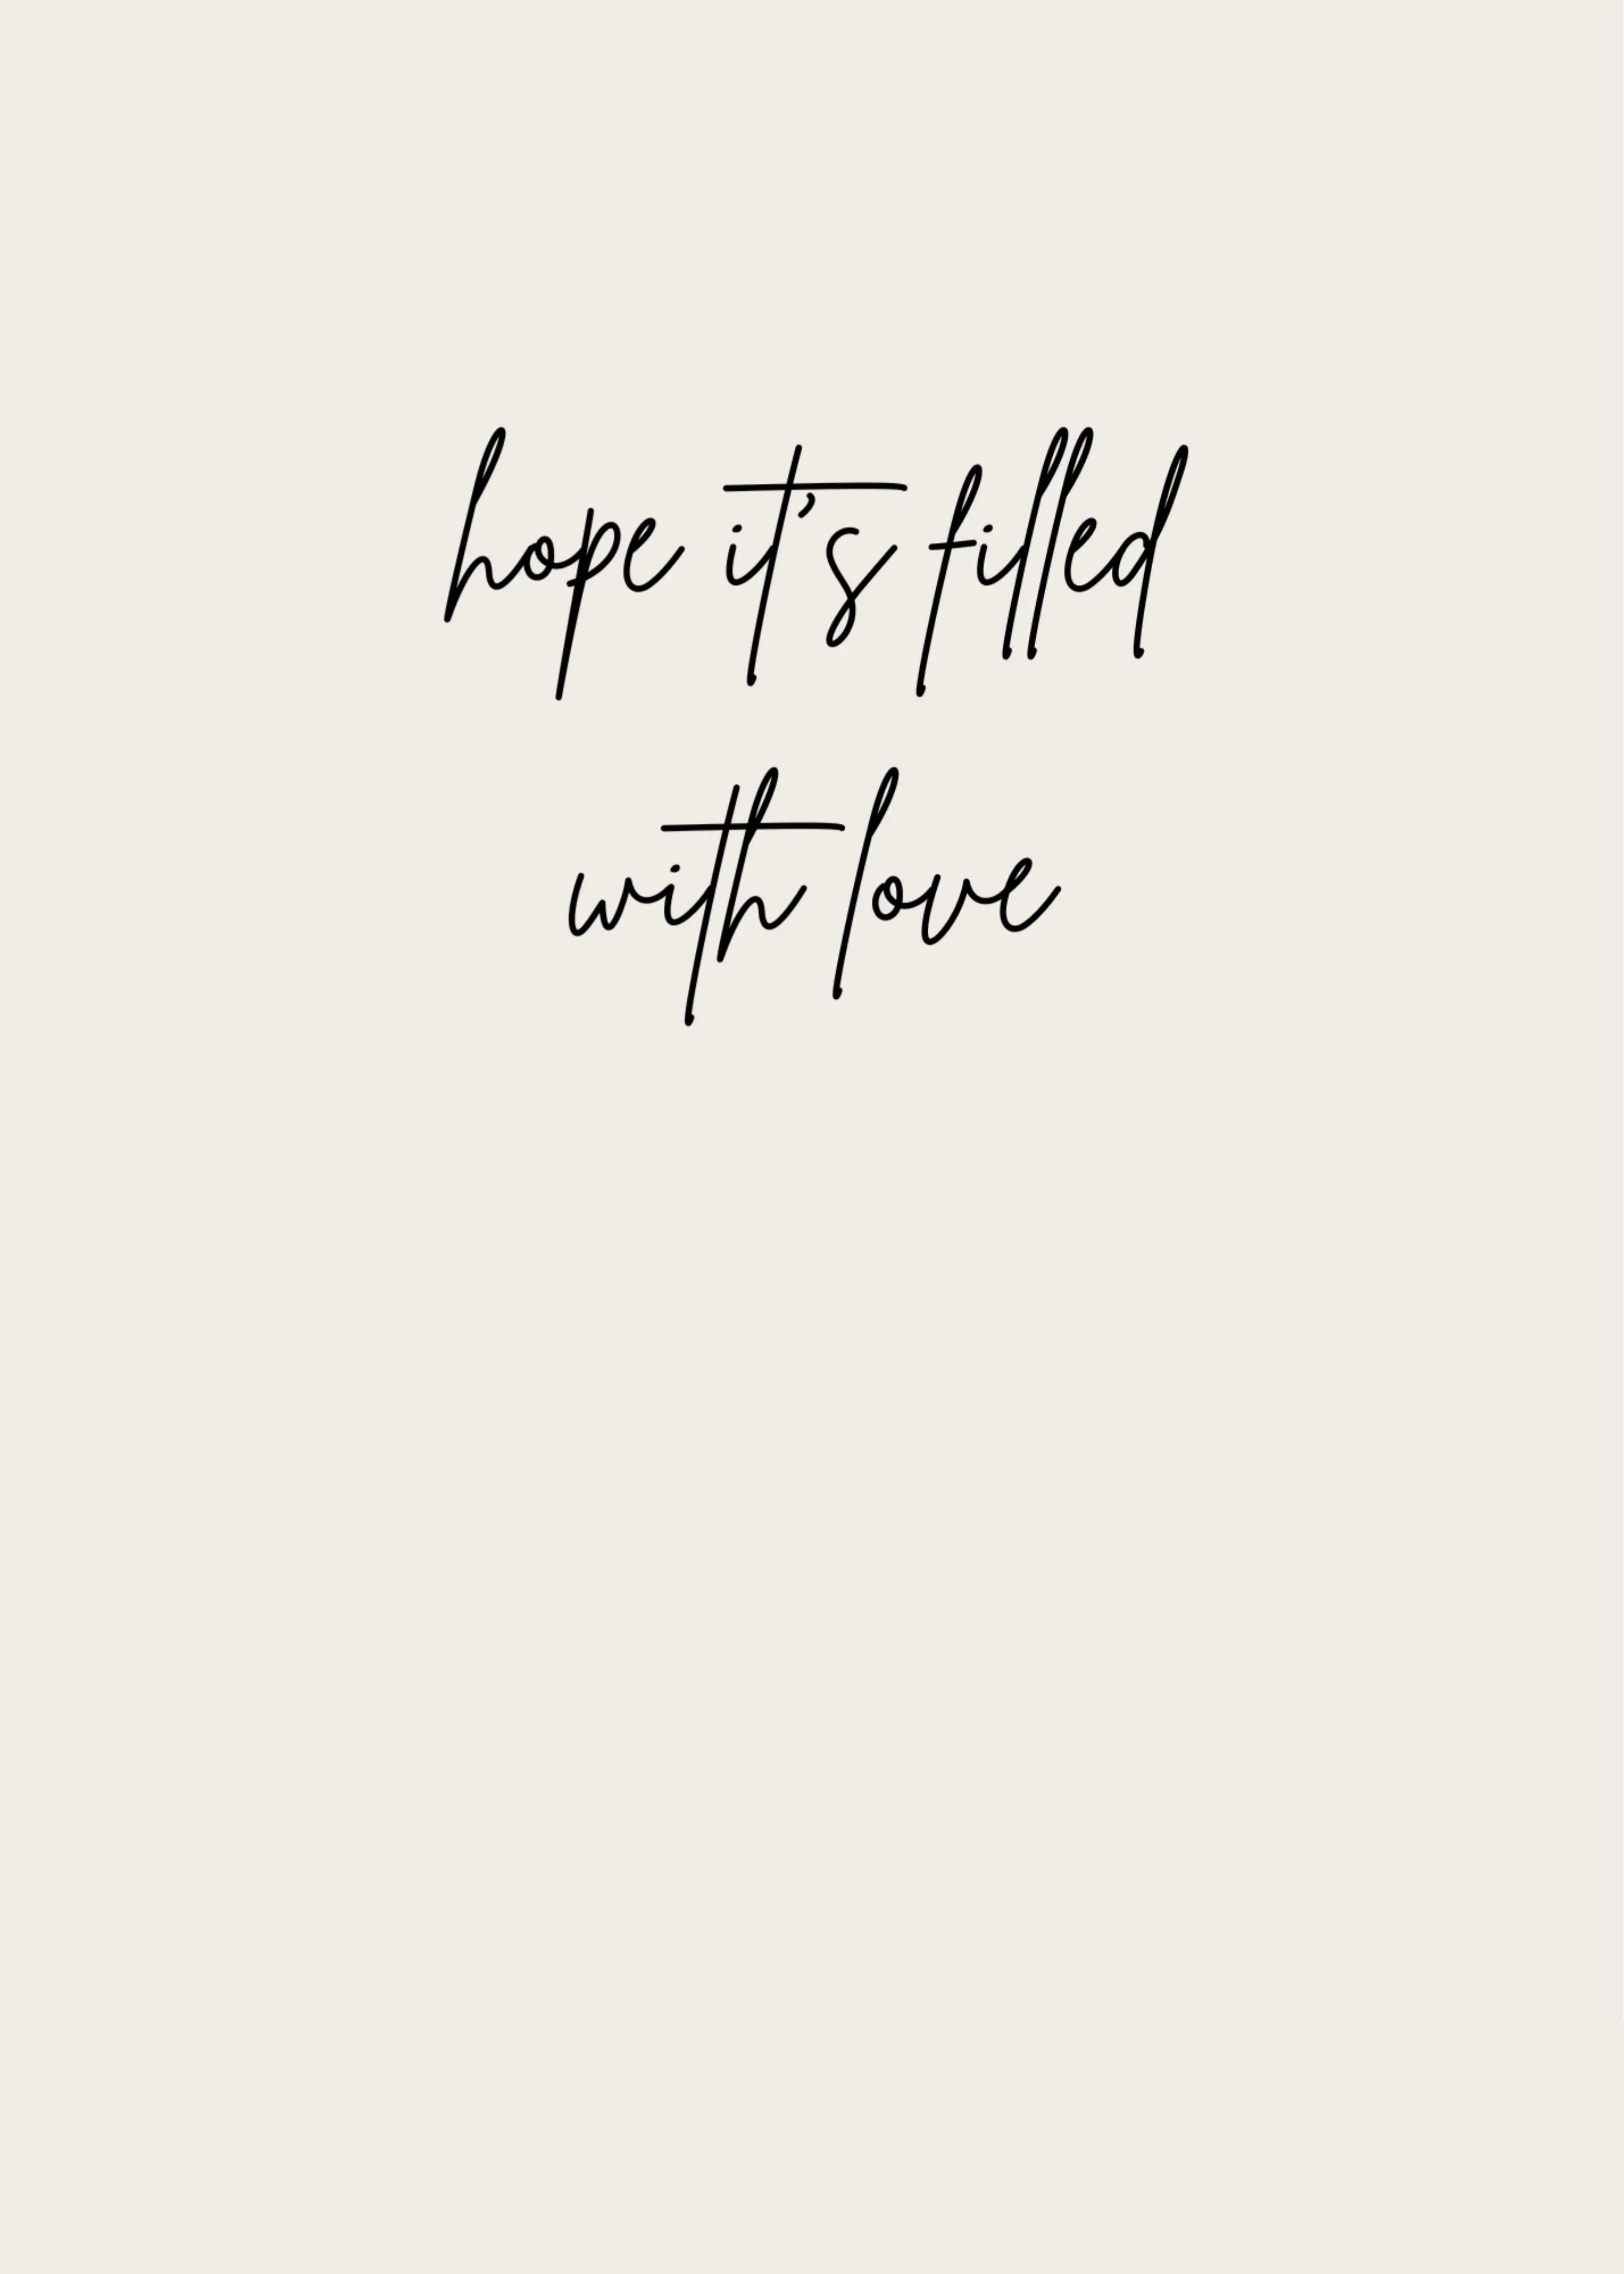 hope it's filled
with love